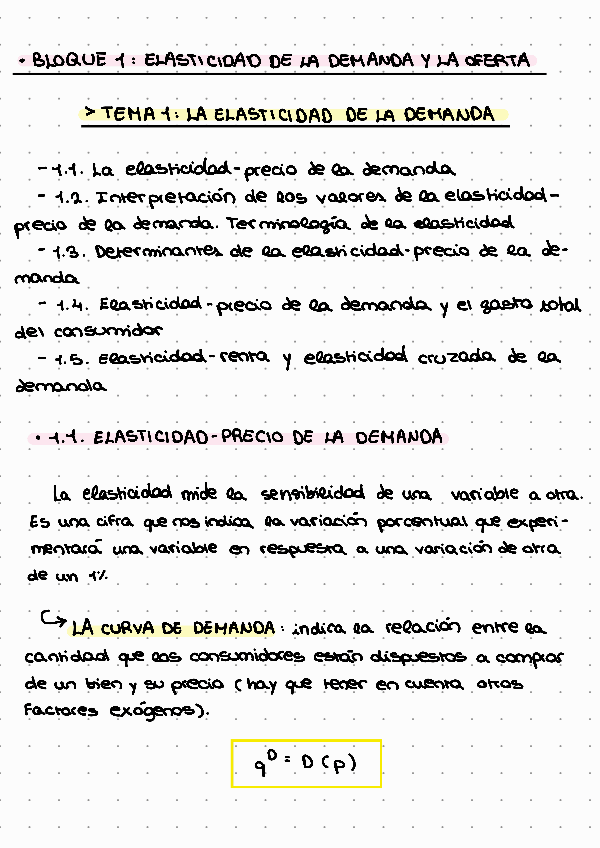 • BLOQUE 1: ELASTICIDAD DE LA DEMANDA Y LA OFERTA
> TEMA 1: LA ELASTICIDAD DE LA DEMANDA
- 1.1. La elasticidad-precio de la demanda
- 1.2. Interpretación de los valores de la elasticidad-
precio de la demanda. Terminología de la elasticidad
- 1.3. Determinantes de la elasticidad-precio de la de-
manda
- 1.4. Elasticidad-precio de la demanda y el gasto total
del consumidor
- 1.5. Elasticidad-renta y elasticidad cruzada de la
demanda
• 1.1. ELASTICIDAD-PRECIO DE LA DEMANDA
La elasticidad mide la sensibilidad de una variable a otra.
Es una cifra que nos indica la variación porcentual que experi-
mentará una variable en respuesta a una variación de otra
de un 1%
↳ LA CURVA DE DEMANDA: indica la relación entre la
cantidad que los consumidores están dispuestos a comprar
de un bien y su precio (hay que tener en cuenta otros
Factores exógenos).
q^D = D(p)